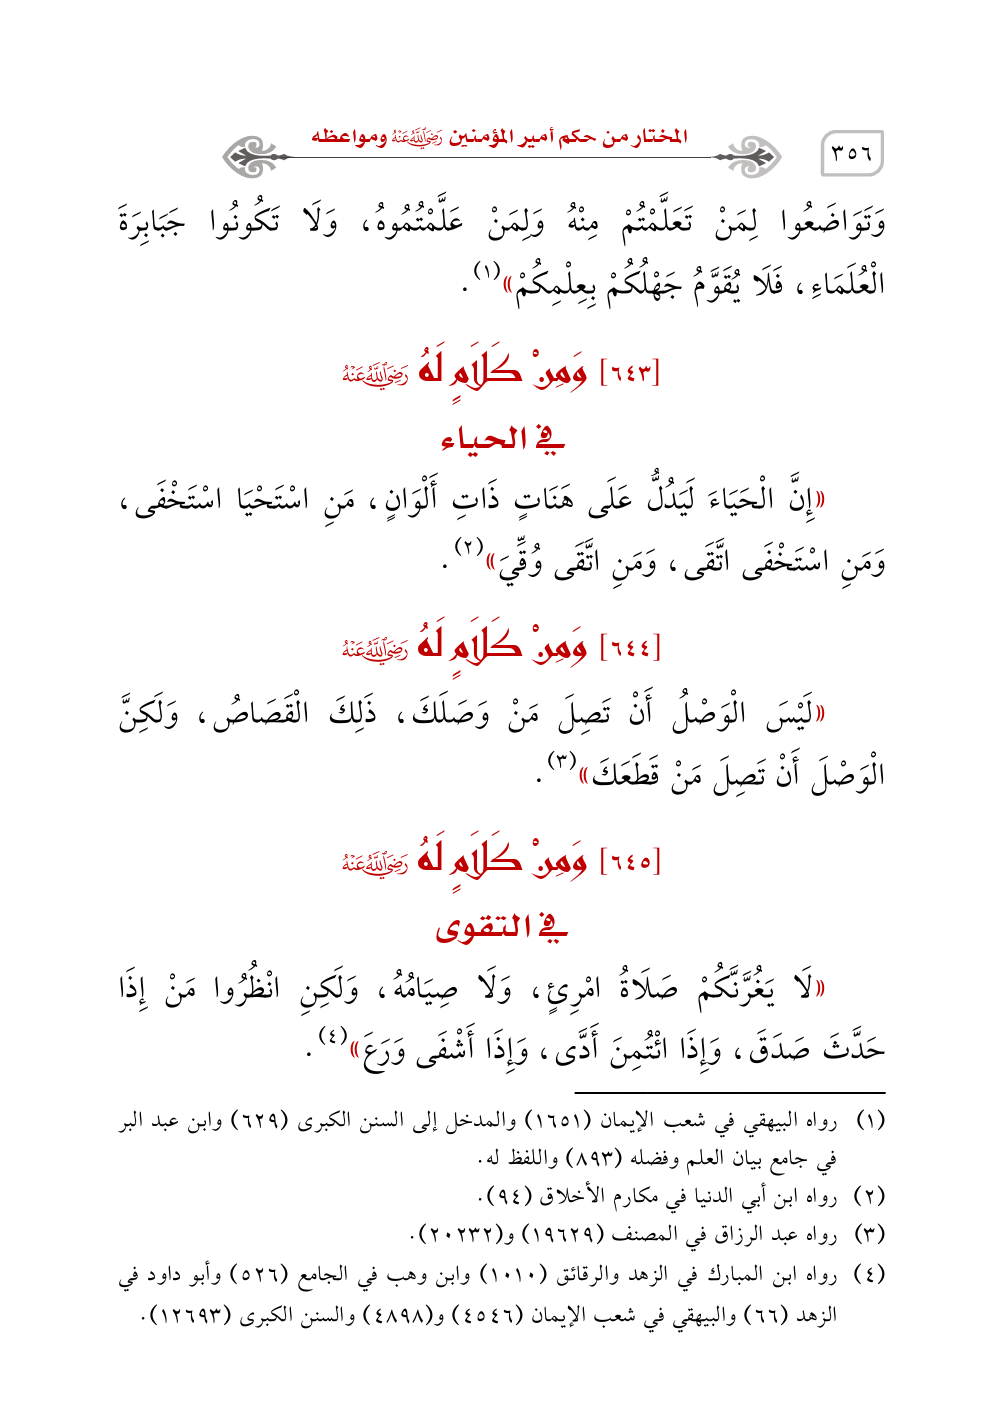 ٣٥٦
المختار من حكم أمير المؤمنين رَضِيَ اللَّهُ عَنْهُ ومواعظه
وَتَوَاضَعُوا لِمَنْ تَعَلَّمْتُمْ مِنْهُ وَلِمَنْ عَلَّمْتُمُوهُ، وَلَا تَكُونُوا جَبَابِرَةَ
الْعُلَمَاءِ، فَلَا يُقَوَّمُ جَهْلُكُمْ بِعِلْمِكُمْ»(١).
[٦٤٣] وَمِنْ كَلَامٍ لَهُ رَضِيَ اللَّهُ عَنْهُ
في الحياء
«إِنَّ الْحَيَاءَ لَيَدُلُّ عَلَى هَنَاتٍ ذَاتِ أَلْوَانٍ، مَنِ اسْتَحْيَا اسْتَخْفَى،
وَمَنِ اسْتَخْفَى اتَّقَى، وَمَنِ اتَّقَى وُقِّيَ»(٢).
[٦٤٤] وَمِنْ كَلَامٍ لَهُ رَضِيَ اللَّهُ عَنْهُ
«لَيْسَ الْوَصْلُ أَنْ تَصِلَ مَنْ وَصَلَكَ، ذَلِكَ الْقَصَاصُ، وَلَكِنَّ
الْوَصْلَ أَنْ تَصِلَ مَنْ قَطَعَكَ»(٣).
[٦٤٥] وَمِنْ كَلَامٍ لَهُ رَضِيَ اللَّهُ عَنْهُ
في التقوى
«لَا يَغُرَّنَّكُمْ صَلَاةُ امْرِئٍ، وَلَا صِيَامُهُ، وَلَكِنِ انْظُرُوا مَنْ إِذَا
حَدَّثَ صَدَقَ، وَإِذَا ائْتُمِنَ أَدَّى، وَإِذَا أَشْفَى وَرَعَ»(٤).
(١) رواه البيهقي في شعب الإيمان (١٦٥١) والمدخل إلى السنن الكبرى (٦٢٩) وابن عبد البر
في جامع بيان العلم وفضله (٨٩٣) واللفظ له.
(٢) رواه ابن أبي الدنيا في مكارم الأخلاق (٩٤).
(٣) رواه عبد الرزاق في المصنف (١٩٦٢٩) و(٢٠٢٣٢).
(٤) رواه ابن المبارك في الزهد والرقائق (١٠١٠) وابن وهب في الجامع (٥٢٦) وأبو داود في
الزهد (٦٦) والبيهقي في شعب الإيمان (٤٥٤٦) و(٤٨٩٨) والسنن الكبرى (١٢٦٩٣).